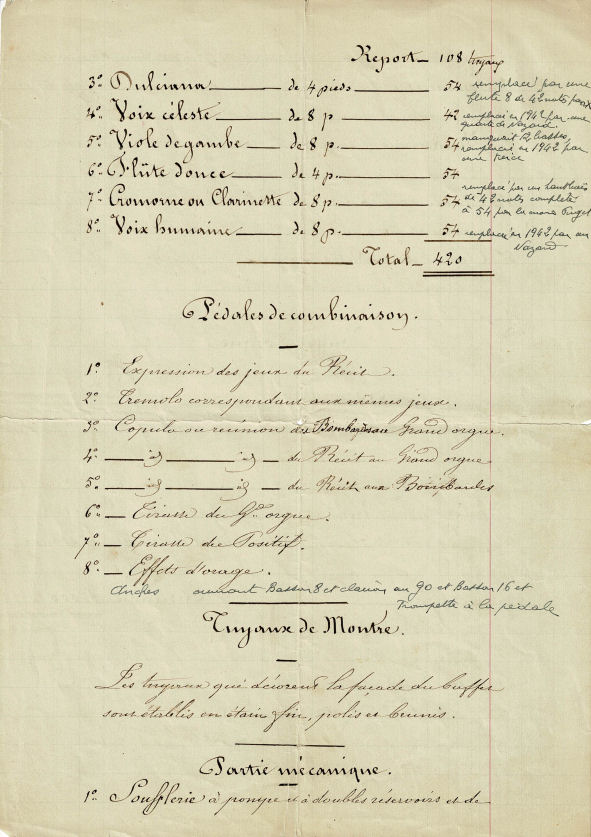 Report — 108 tuyaux
3º Dulciana — de 4 pieds — 54 remplacé par une
flute 8 de 42 nots
4º Voix céleste — de 8 p. — 42 remplacé en 1942 par une
quarte de Nazard.
5º Viole de gambe — de 8 p. — 54 manquait 12 basses,
remplacée en 1942 par
une tierce
6º Flûte douce — de 4 p. — 54
7º Cromorne ou Clarinette de 8 p. — 54 remplacé par un hautbois
de 42 nots complété
à 54 par la maison Puget
8º Voix humaine — de 8 p. — 54 remplacé en 1942 par un
Nazard
Total — 420
Pédales de combinaison.
1º Expression des jeux du Récit.
2º Tremolo correspondant aux mêmes jeux.
3º Copula ou réunion du Bombardes au Grand orgue.
4º — id — id — du Récit au Grand orgue
5º — id — id — du Récit aux Bombardes
6º — Tirasse du Gd orgue.
7º — Tirasse du Positif.
8º — Effets d'orage.
Anches ouvrant Basson 8 et clairon au go et Basson 16 et
trompette à la pédale
Tuyaux de Montre.
Les tuyaux qui décorent la façade du buffet
sont établis en étain fin, polis et brunis.
Partie mécanique.
1º Soufflerie à pompe et à doubles réservoirs et de